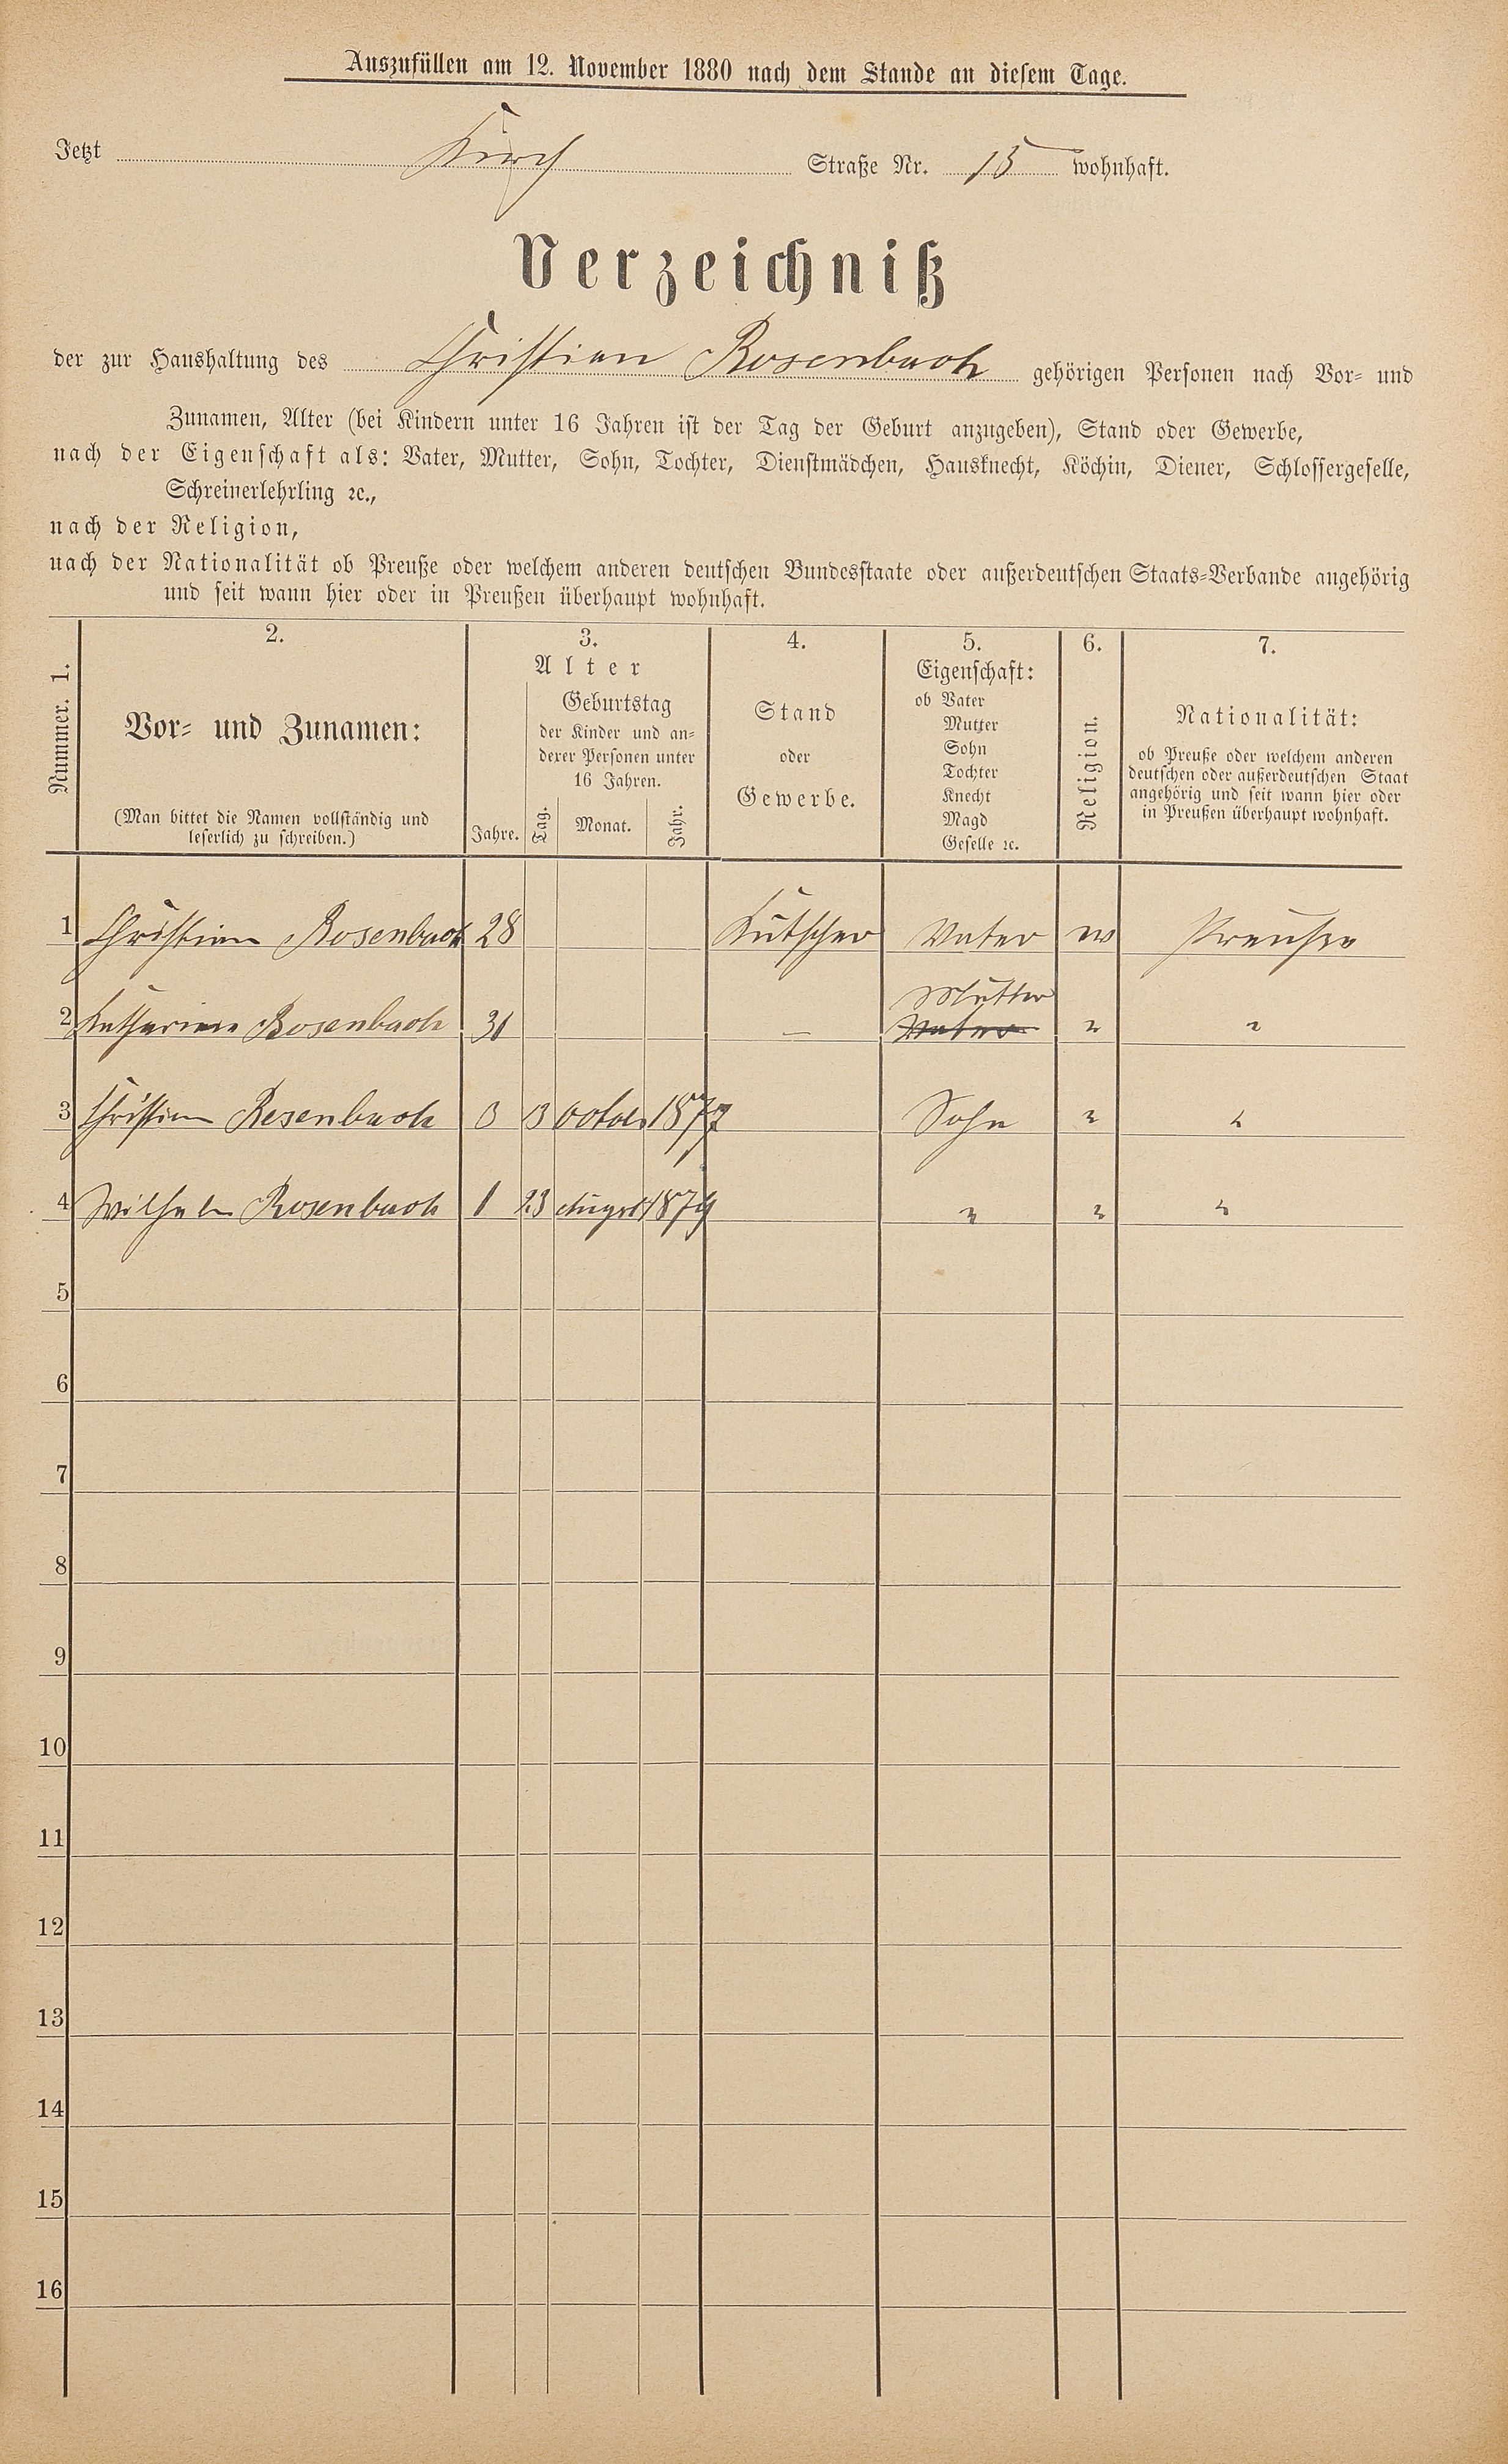 Auszufüllen am 12. November 1880 nach dem Stande an diesem Tage.
Jetzt Kirch Straße Nr. 15 wohnhaft.
Verzeichniß
der zur Haushaltung des Christian Rosenbach gehörigen Personen nach Vor- und
Zunamen, Alter (bei Kindern unter 16 Jahren ist der Tag der Geburt anzugeben), Stand oder Gewerbe,
nach der Eigenschaft als: Vater, Mutter, Sohn, Tochter, Dienstmädchen, Hausknecht, Köchin, Diener, Schlossergeselle,
Schreinerlehrling ꝛc.,
nach der Religion,
nach der Nationalität ob Preuße oder welchem anderen deutschen Bundesstaate oder außerdeutschen Staats-Verbande angehörig
und seit wann hier oder in Preußen überhaupt wohnhaft.
Nummer. 1.
2.
Vor- und Zunamen:
(Man bittet die Namen vollständig und
leserlich zu schreiben.)
3.
Alter
Jahre.
Geburtstag
der Kinder und an-
derer Personen unter
16 Jahren.
Tag. Monat. Jahr.
4.
Stand
oder
Gewerbe.
5.
Eigenschaft:
ob Vater
Mutter
Sohn
Tochter
Knecht
Magd
Geselle ꝛc.
6.
Religion.
7.
Nationalität:
ob Preuße oder welchem anderen
deutschen oder außerdeutschen Staat
angehörig und seit wann hier oder
in Preußen überhaupt wohnhaft.
1 Christian Rosenbach 28 Kutscher Vater Preuße
Mutter
2 Katharina Rosenbach 31 — Vater " "
3 Christian Rosenbach 3 13 October 1877 Sohn " "
4 Wilhelm Rosenbach 1 23 August 1879 " " "
5
6
7
8
9
10
11
12
13
14
15
16